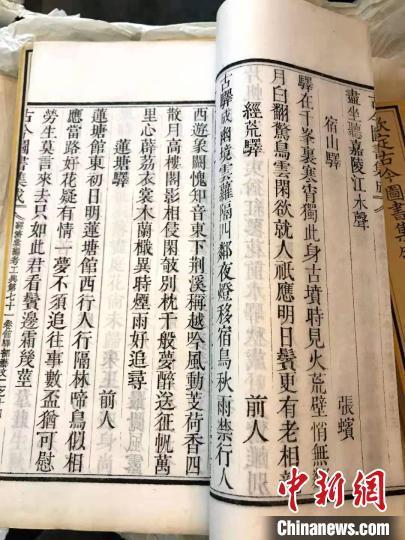 欽定古今圖書集成
盡坐聽嘉陵江水聲
宿山驛　張蠙
驛在千峯裏寒宵獨此身古墳時見火荒壁悄無
月白翻驚鳥雲閑欲就人祇應明日鬢更有老相
經荒驛　前人
古驛成幽境雲蘿隔四鄰夜燈移宿鳥秋雨禁行人
西遊象闕愧知音東下荆溪稱越吟風動芰荷香四
散月高樓閣影相侵閑敧別枕千般夢醉送征帆萬
里心薜荔衣裳木蘭檝異時煙雨好追尋
蓮塘驛　前人
蓮塘館東初日明蓮塘館西行人行隔林啼鳥似相
應當路好花疑有情一夢不須追往事數盃猶可慰
勞生莫言來去只如此君看鬢邊霜幾莖
古今圖書集成
中新网
Chinanews.com